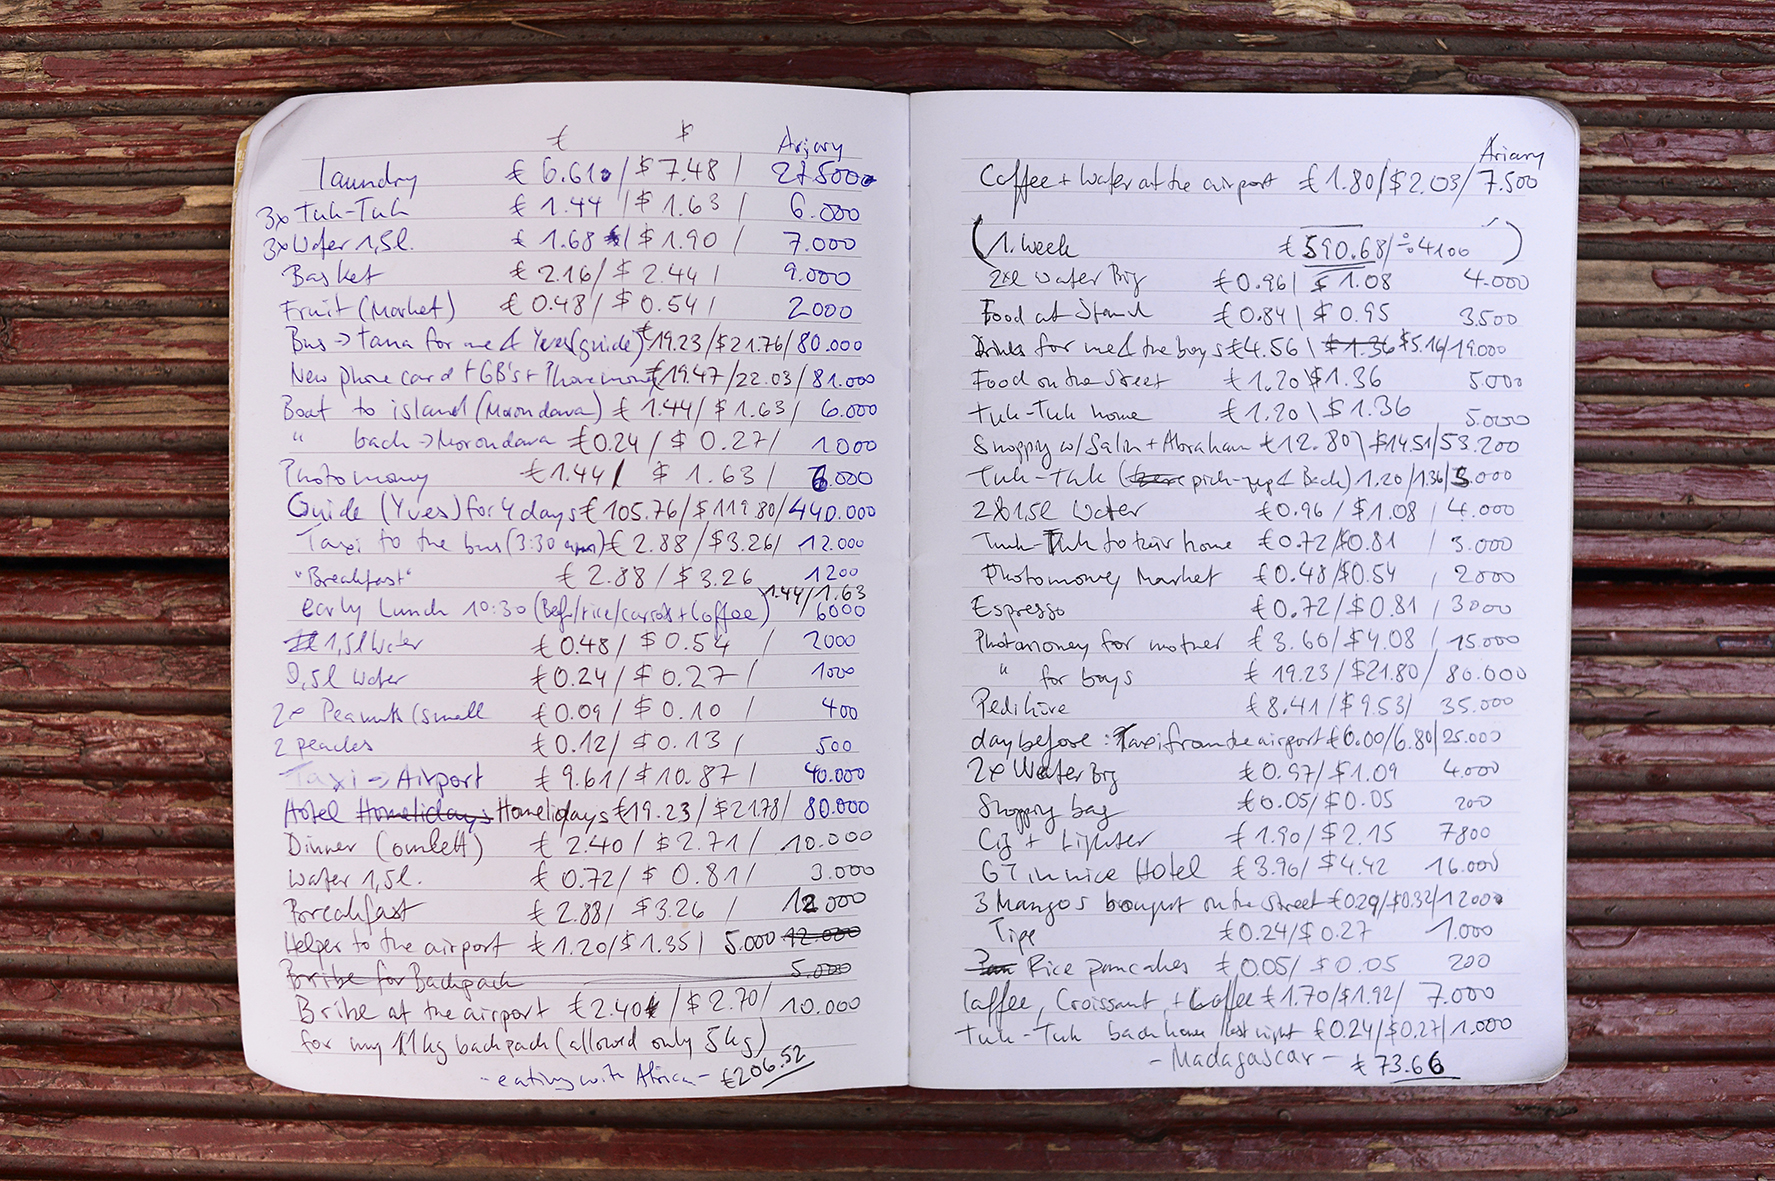 € $ Ariary
laundry € 6.61 / $ 7.48 / 27.500
3x Tuk-Tuk € 1.44 / $ 1.63 / 6.000
3x Water 1,5l. € 1.68 / $ 1.90 / 7.000
Basket € 2.16 / $ 2.44 / 9.000
Fruit (Market) € 0.48 / $ 0.54 / 2000
Bus -> tana for me & Yves (guide) € 19.23 / $ 21.76 / 80.000
New phone card + GB's + Phone money € 19.47 / 22.03 / 81.000
Boat to island (Morondava) € 1.44 / $ 1.63 / 6.000
" back -> Morondava € 0.24 / $ 0.27 / 1000
Photomoney € 1.44 / $ 1.63 / 6.000
Guide (Yves) for 4 days € 105.76 / $ 119.80 / 440.000
Taxi to the bus (3:30 am) € 2.88 / $ 3.26 / 12.000
"Breakfast" € 2.88 / $ 3.26 1200
early Lunch 10:30 (Bef/rice/carrots + Coffee) 1.44 / 1.63 6000
1,5l Water € 0.48 / $ 0.54 2000
0,5l Water € 0.24 / $ 0.27 / 1000
2x Peanuts (small € 0.09 / $ 0.10 / 400
2 peaches € 0.12 / $ 0.13 / 500
Taxi -> Airport € 9.61 / $ 10.87 / 40.000
Hotel Homelidays Homelidays € 19.23 / $ 21.78 / 80.000
Dinner (omlett) € 2.40 / $ 2.71 / 10.000
Water 1,5l. € 0.72 / $ 0.81 / 3.000
Breakfast € 2.88 / $ 3.26 / 12000
Helper to the airport € 1.20 / $ 1.35 / 5.000 12.000
Bribe for Backpack 5.000
Bribe at the airport € 2.40 / $ 2.70 / 10.000
for my 11kg backpack (allowed only 5kg)
- eating with Africa - € 206.52
Ariary
Coffee + Water at the airport € 1.80 / $ 2.03 / 7.500
(1. week € 590.68 / ÷ 4100 )
2x Water Big € 0.96 / $ 1.08 4.000
Food at Stand € 0.84 \ $ 0.95 3.500
Drinks for me & the boys € 4.56 \ $ 1.36 $ 5.16 / 19.000
Food on the Street € 1.20 \ $ 1.36 5.000
Tuk-Tuk home € 1.20 \ $ 1.36 5.000
Shoppy w/ Salin + Abraham € 12.80 \ $ 14.51 / 53.200
Tuk-Tuk (pick-up & Back) 1.20 / 1.36 / 5.000
2x 1,5l Water € 0.96 / $ 1.08 / 4.000
Tuk-Tuk to their home € 0.72 / $ 0.81 / 3.000
Photomoney Market € 0.48 / $ 0.54 / 2000
Espresso € 0.72 / $ 0.81 / 3000
Photomoney for mother € 3.60 / $ 4.08 / 15.000
" for boys € 19.23 / $ 21.80 / 80.000
Pediküre € 8.41 / $ 9.53 / 35.000
day before: Taxi from the airport € 6.00 / 6.80 / 25.000
2x Water Big € 0.97 / $ 1.09 4.000
Shoppy bag € 0.05 / $ 0.05 200
Cig + Lighter € 1.90 / $ 2.15 7800
GT in nice Hotel € 3.96 / $ 4.42 16.000
3 Mangos bought on the street € 0.29 / $ 0.32 / 1200
Tipp € 0.24 / $ 0.27 1.000
Rice pancakes € 0.05 / $ 0.05 200
Caffee, Croissant, + Coffee € 1.70 / $ 1.92 / 7.000
Tuk-Tuk back home last night € 0.24 / $ 0.27 / 1.000
- Madagascar - € 73.66